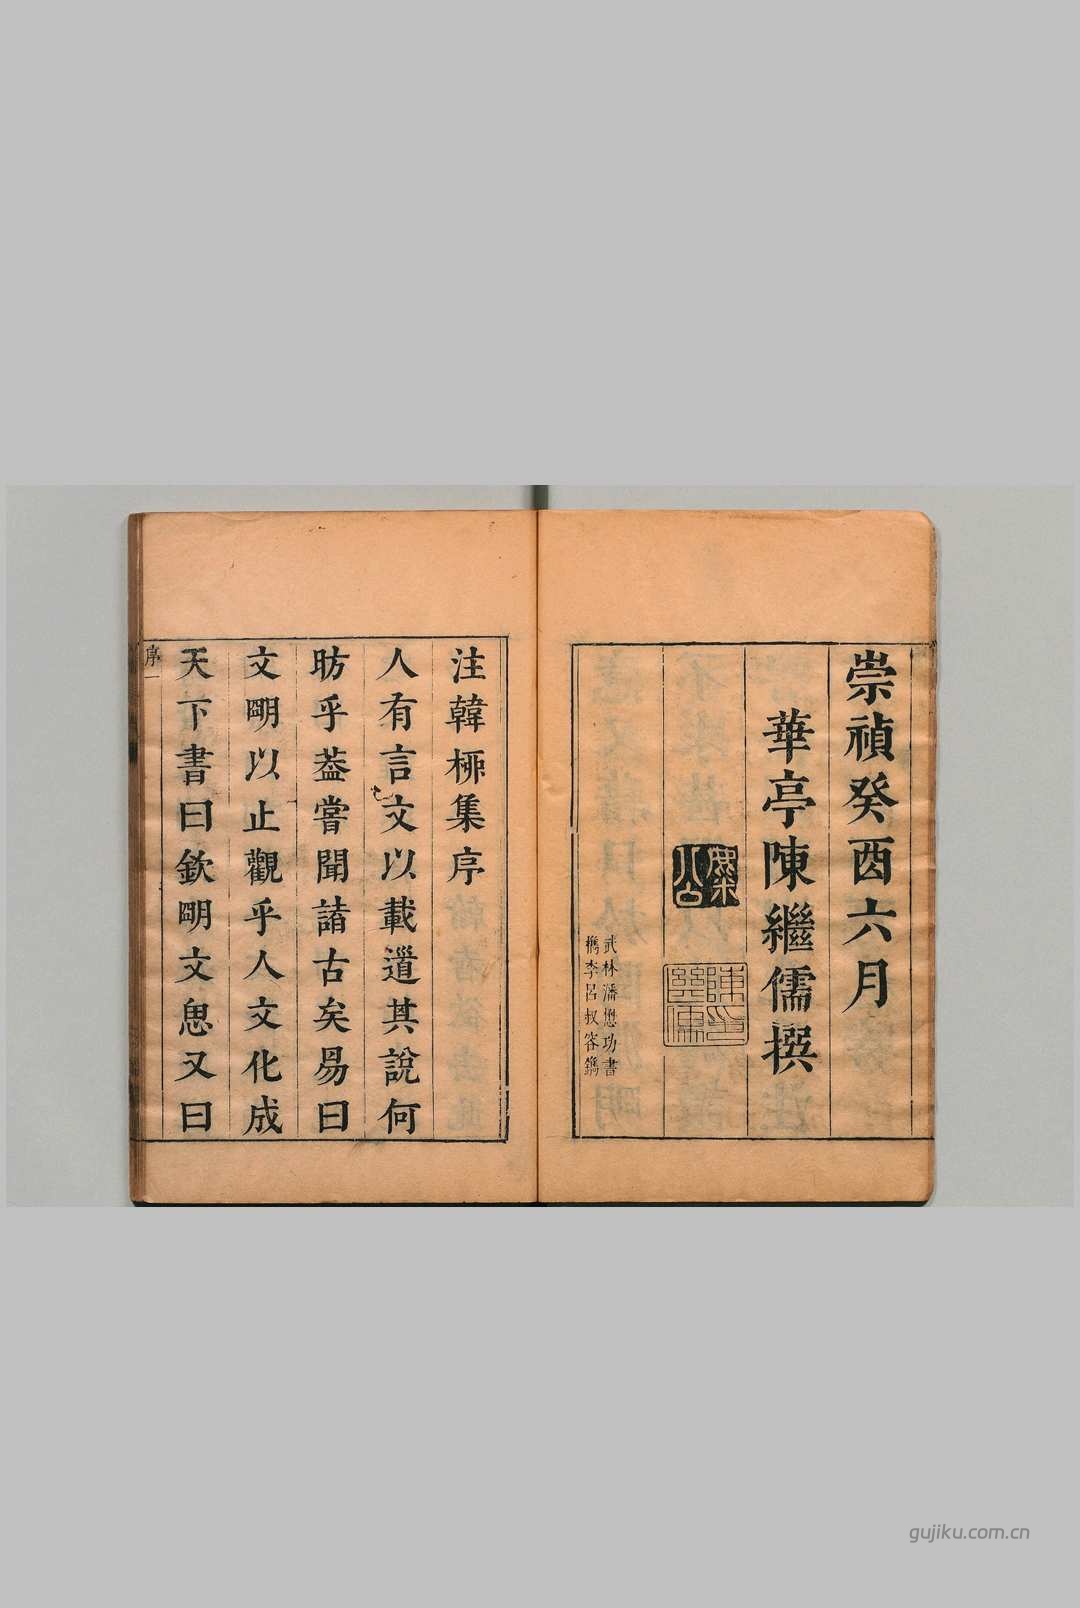 崇禎癸酉六月
華亭陳繼儒撰
麋公
陳繼儒印
武林潘懋功書
檇李呂叔容鐫
注韓栁集序
人有言文以載道其說何
昉乎葢嘗聞諸古矣易曰
文明以止觀乎人文化成
天下書曰欽明文思又曰
序一
gujiku.com.cn